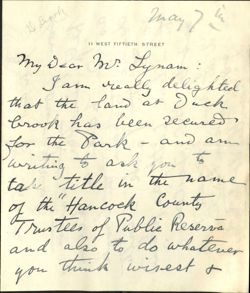 May 7th
11 WEST FIFTIETH STREET
My Dear Mr. Lynam:
I am really delighted
that the land at Duck
Brook has been secured
for the Park - and am
writing to ask you to
take title in the name
of the "Hancock County
Trustees of Public Reserva
and also to do whatever
you think wisest &